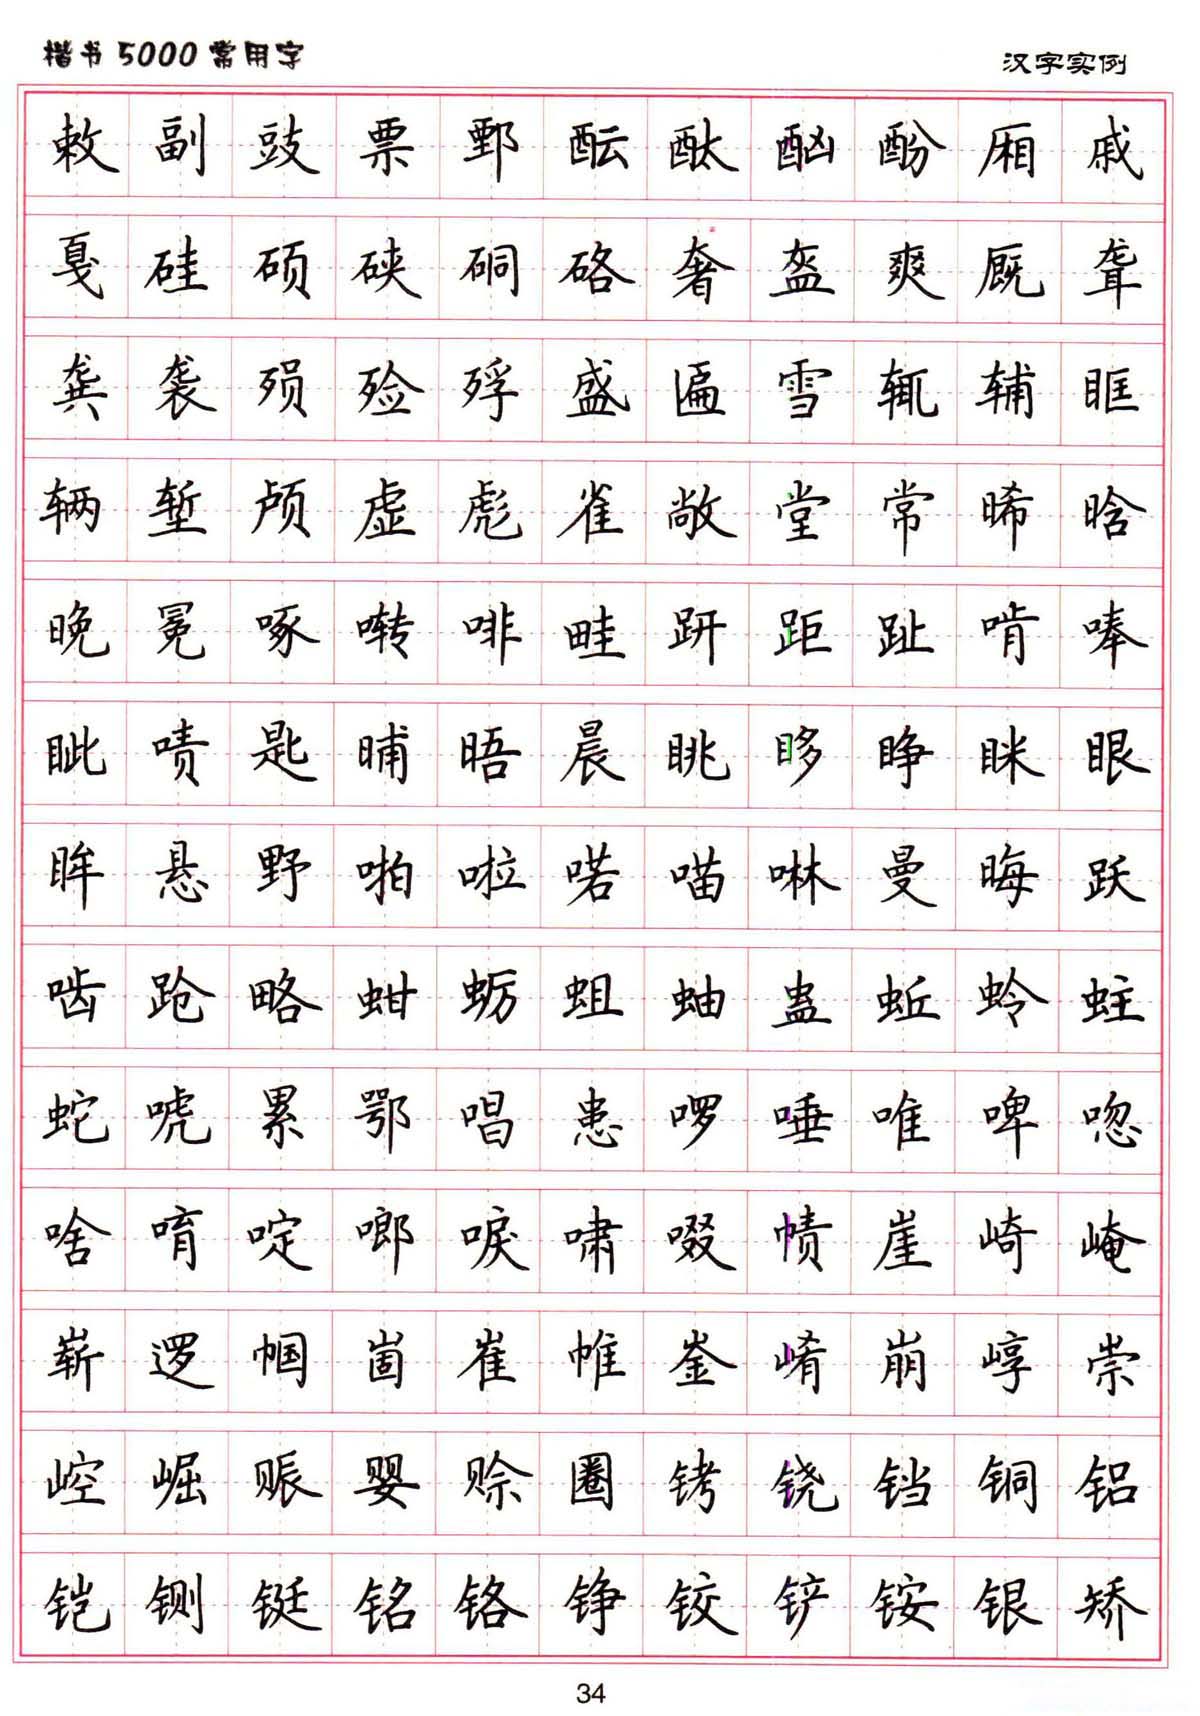 楷书5000常用字
汉字实例
敕副豉票鄄酝酞酗酚厢戚
戛硅硕硖硐硌奢盔爽厩聋
龚袭殒殓殍盛匾雪辄辅眶
辆堑颅虚彪雀敞堂常晞晗
晚冕啄啭啡畦趼距趾啃唪
眦啧匙晡晤晨眺眵睁眯眼
眸悬野啪啦喏喵啉曼晦跃
啮跄略蚶蛎蛆蚰蛊蚯蛉蛀
蛇唬累鄂唱患啰唾唯啤唿
啥唷啶啷唳啸啜帻崖崎崦
崭逻帼崮崔帷崟崤崩崞崇
崆崛赈婴赊圈铐铙铛铜铝
铠铡铤铭铬铮铰铲铵银矫
34